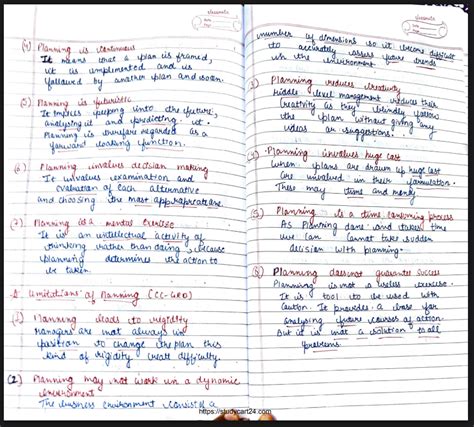 classmate
Date
Page
(4) Planning is continuous
It means that a plan is framed,
it is implemented and is
followed by another plan and soon.
(5) Planning is futuristic
It implies peeping into the future,
analysing it and predicting it.
Planning is therefore regarded as a
forward looking function.
(6) Planning involves decision making
It involves examination and
evaluation of each alternative
and choosing the most appropriate one.
(7) Planning is a mental exercise
It is an intellectual activity of
thinking rather than doing, because
planning determines the action to
be taken.
Limitations of Planning
(1) Planning leads to rigidity
Managers are not always in
position to change the plan this
kind of rigidity creat difficulty.
(2) Planning may not work in a dynamic
environment
The business environment consists of a
classmate
Date
Page
number of dimensions so it becoms difficult
to accurately assess future trends
in the environment.
Planning reduces creativity
Middle level management reduces their
creativity as they blindly follow
the plan without giving any
ideas or suggestions.
Planning involves huge cost
When plans are drawn up huge cost
are involved in their formulation.
These may time and money
Planning is a time consuming process
As Planning done and taken time
we can cannot take sudden
decision with planning.
Planning does not guarantee success
Planning is not a useless exercise.
It is tool to be used with
caution. It provides a base for
Analysing future courses of action.
But it is not a solution to all
problems.
https://studycart24.com